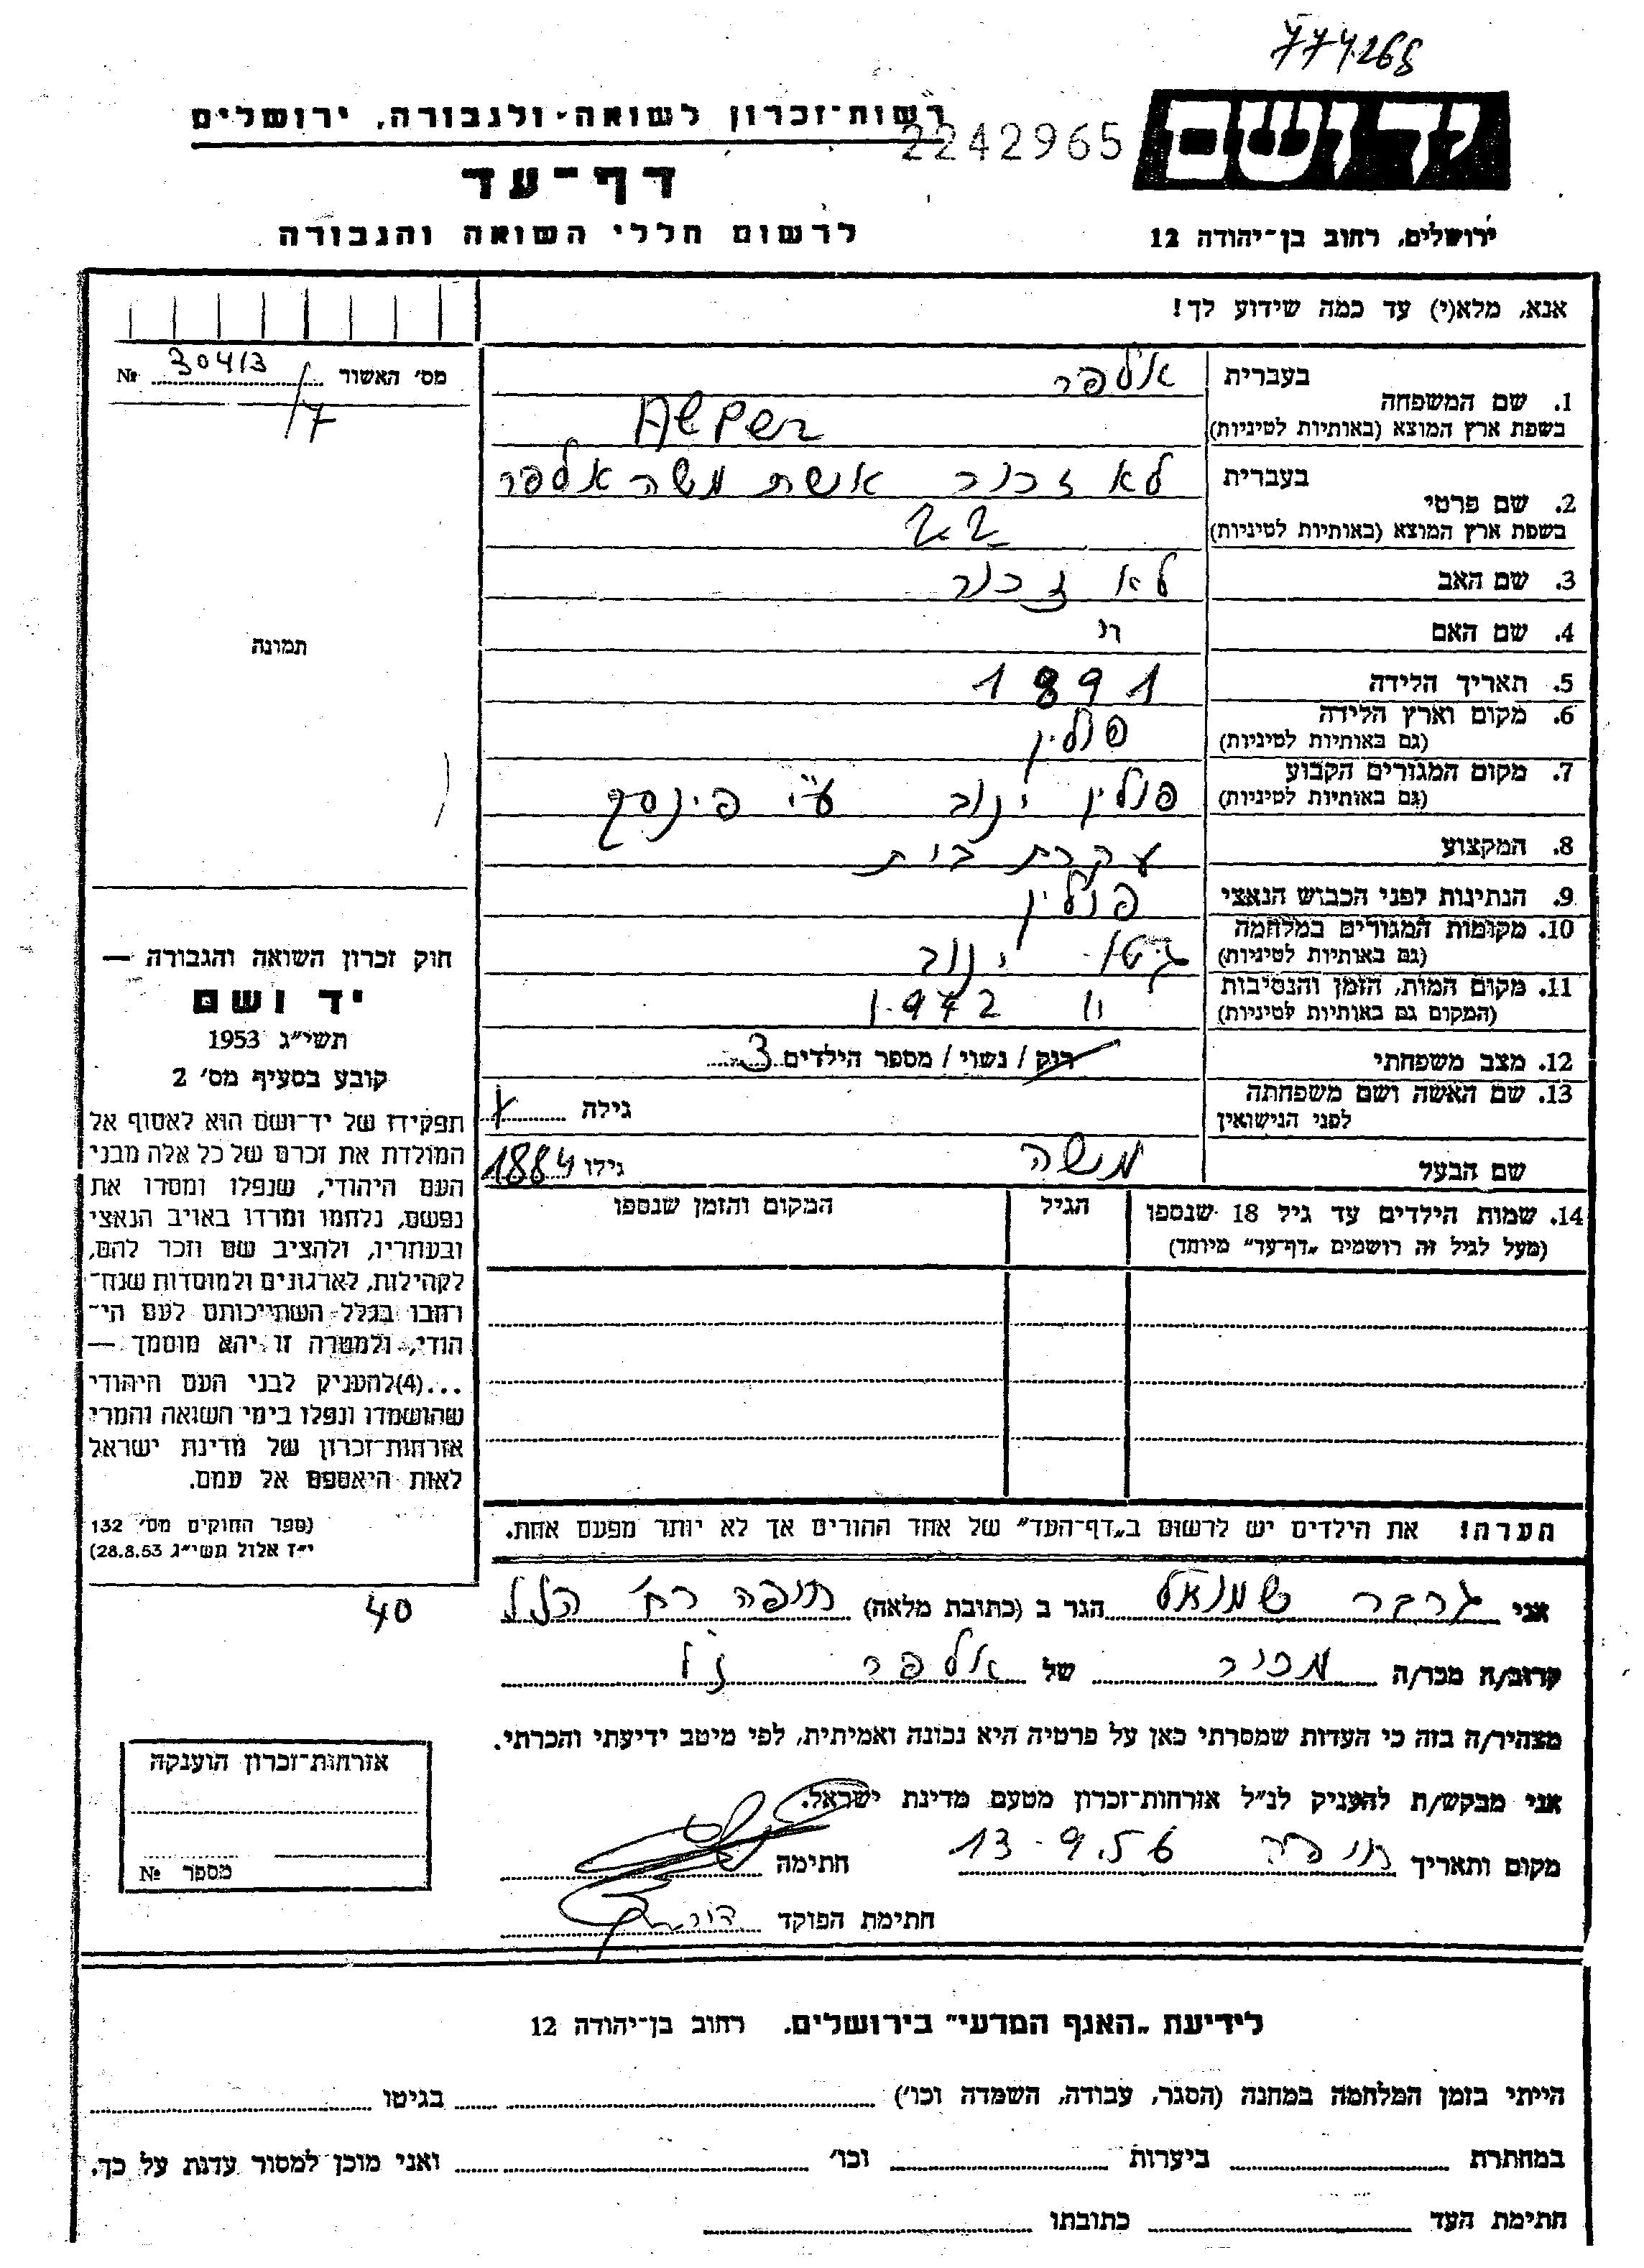 774268
רשות־זכרון לשואה ולגבורה, ירושלים
2242965
יד ושם
דף־עד
לרשום חללי השואה והגבורה
ירושלים, רחוב בן־יהודה 12
אנא, מלא(י) עד כמה שידוע לך!
מס׳ האשור 30413 №
/7
1. שם המשפחה
בעברית אלפר
בשפת ארץ המוצא (באותיות לטיניות) Alper
2. שם פרטי
בעברית לא זכור אשת משה אלפר
בשפת ארץ המוצא (באותיות לטיניות)
3. שם האב לא זכור
4. שם האם "
5. תאריך הלידה 1891
6. מקום וארץ הלידה פולין
(גם באותיות לטיניות)
7. מקום המגורים הקבוע פולין ינוב ע"י פינסק
(גם באותיות לטיניות)
8. המקצוע עקרת בית
9. הנתינות לפני הכבוש הנאצי פולין
10. מקומות המגורים במלחמה גיטו ינוב
(גם באותיות לטיניות)
11. מקום המות, הזמן והנסיבות " 1942
(המקום גם באותיות לטיניות)
12. מצב משפחתי רוק / נשוי / מספר הילדים 3
13. שם האשה ושם משפחתה
לפני הנישואין גילה
שם הבעל משה גילו 1884
14. שמות הילדים עד גיל 18 שנספו
(מעל לגיל זה רושמים „דף־עד" מיוחד)
הגיל
המקום והזמן שנספו
הערה! את הילדים יש לרשום ב„דף־העד" של אחד ההורים אך לא יותר מפעם אחת.
תמונה
חוק זכרון השואה והגבורה —
יד ושם
תשי״ג 1953
קובע בסעיף מס׳ 2
תפקידו של יד־ושם הוא לאסוף אל
המולדת את זכרם של כל אלה מבני
העם היהודי, שנפלו ומסרו את
נפשם, נלחמו ומרדו באויב הנאצי
ובעוזריו, ולהציב שם וזכר להם,
לקהילות, לארגונים ולמוסדות שנח־
רחבו בגלל השתייכותם לעם הי־
הודי, ולמטרה זו יהא מוסמך —
...(4) להעניק לבני העם היהודי
שהושמדו ונפלו בימי השואה והמרי
אזרחות־זכרון של מדינת ישראל
לאות היאספם אל עמם.
(ספר החוקים מס׳ 132
י״ז אלול תשי״ג 28.8.53)
40
אני גרבר שמואל הגר ב (כתובת מלאה) חיפה רח׳ הלל
קרוב/ה מכר/ה מכיר של אלפר ז"ל
מצהיר/ה בזה כי העדות שמסרתי כאן על פרטיה היא נכונה ואמיתית, לפי מיטב ידיעתי והכרתי.
אני מבקש/ת להעניק לנ״ל אזרחות־זכרון מטעם מדינת ישראל.
מקום ותאריך חיפה 13.9.56 חתימה
חתימת הפוקד
אזרחות־זכרון הוענקה
מספר №
לידיעת „האגף המדעי" בירושלים. רחוב בן־יהודה 12
הייתי בזמן המלחמה במחנה (הסגר, עבודה, השמדה וכו׳) בגיטו
במחתרת ביערות וכו׳ ואני מוכן למסור עדות על כך.
חתימת העד כתובתו